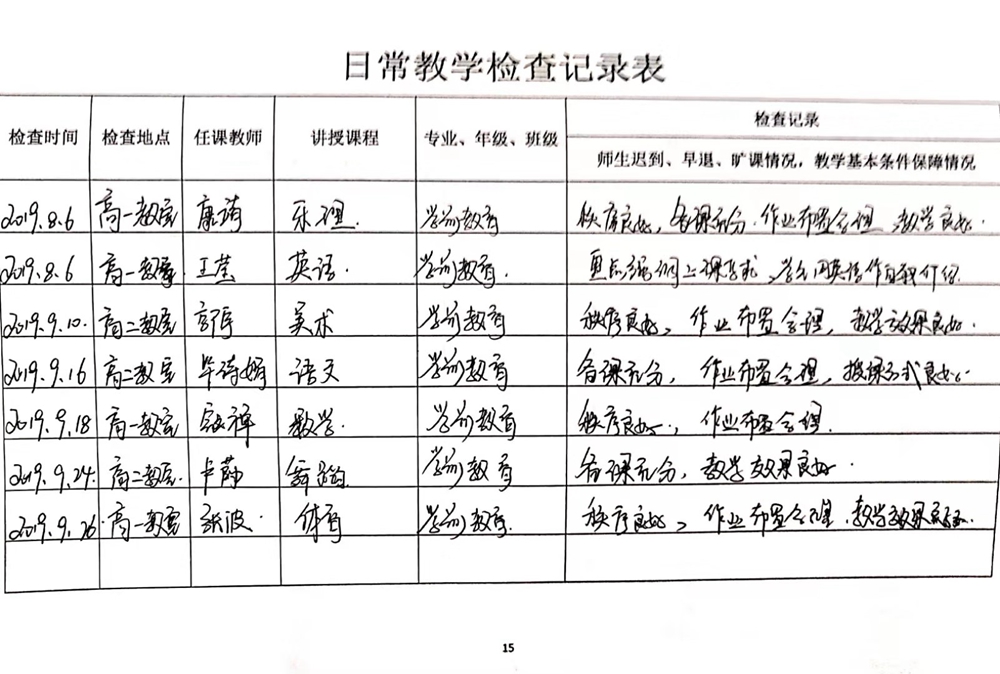 日常教学检查记录表
检查时间 检查地点 任课教师 讲授课程 专业、年级、班级 检查记录
师生迟到、早退、旷课情况，教学基本条件保障情况
2019.8.6 高一教室 康琦 乐理. 学前教育 秩序良好，备课充分.作业布置合理 教学良好.
2019.8.6 高一教室 王莹 英语. 学前教育.
2019.9.10. 高二教室 美术 学前教育 秩序良好，作业布置合理，教学效果良好.
2019.9.16 高二教室 毕诗娟 语文 学前教育 备课充分，作业布置合理，授课方式良好.
2019.9.18 高一教室 数学. 学前教育 秩序良好.，作业布置合理.
2019.9.24. 高二教室. 舞蹈 学前教育 备课充分，教学效果良好.
2019.9.26. 高一教室 张波. 体育 学前教育. 秩序良好，作业布置合理.教学效果
15